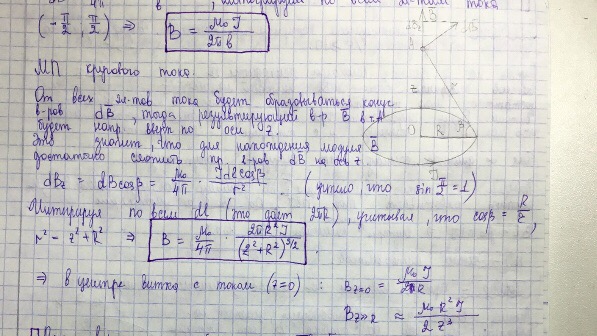 (-π/2, π/2) ⇒ B = μ₀ I / 2πb
МП кругового тока.
От всех эл-тов тока будет образовываться конус
в-ров dB̄, тогда результирующий в-р B̄ в т. A
будет напр. вверх по оси z.
Это значит, что для нахождения модуля B̄
достаточно сложить пр. в-ров dB̄ на ось z
dBz = dB cosβ = μ₀/4π · I dl cosβ / r² (учтено, что sin π/2 = 1)
Интегрируя по всем dl (это даёт 2πR), учитывая, что cosβ = R/r,
r² = z² + R² ⇒ B = μ₀/4π · 2πR² I / (z² + R²)^3/2.
⇒ в центре витка с током (z=0) : B z=0 = μ₀ I / 2R
B z>>R ≈ μ₀ R² I / 2 z³
z
r
O
R
β
I